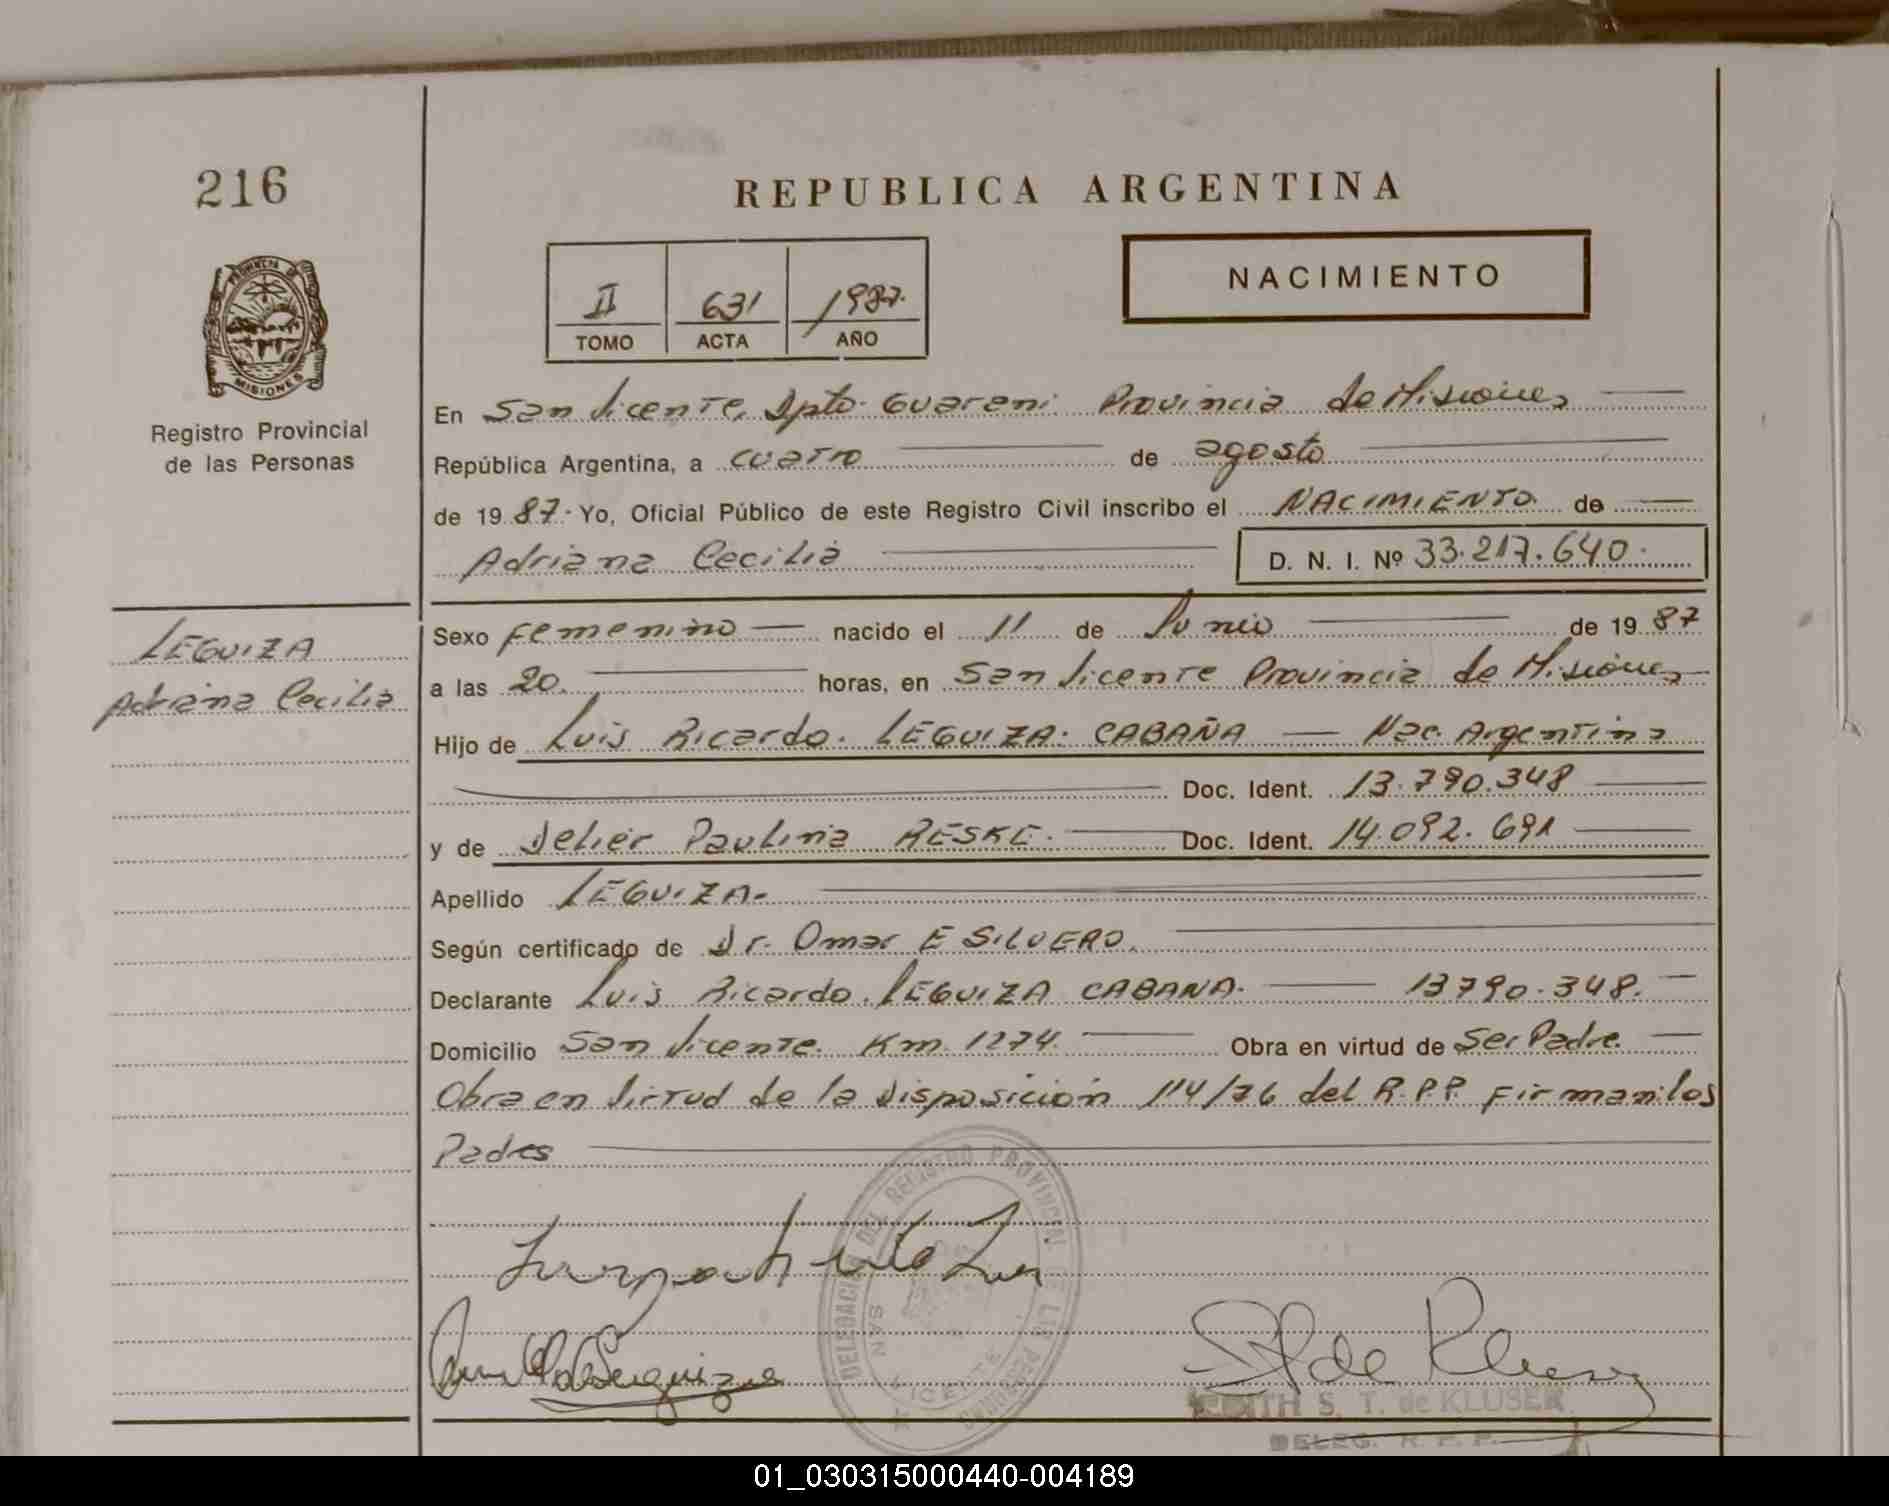 216
REPUBLICA ARGENTINA
II 631 1987.
TOMO ACTA AÑO
NACIMIENTO
PROVINCIA DE
MISIONES
Registro Provincial
de las Personas
En San Vicente, Dpto. Guarani Provincia de Misiones
República Argentina, a cuatro de agosto
de 1987. Yo, Oficial Público de este Registro Civil inscribo el NACIMIENTO de
Adriana Cecilia D. N. I. Nº 33.217.640.
LEGUIZA
Adriana Cecilia
Sexo Femenino nacido el 11 de Junio de 1987
a las 20. horas, en San Vicente Provincia de Misiones
Hijo de Luis Ricardo. LEGUIZA. CABAÑA Nac. Argentina
Doc. Ident. 13.790.348
y de Paulina RESKE. Doc. Ident. 14.092.691
Apellido LEGUIZA.
Según certificado de Dr. Omar E SILVERO.
Declarante Luis Ricardo. LEGUIZA CABANA. 13790.348.
Domicilio San Vicente. Km. 1274. Obra en virtud de Ser Padre.
Obra en Virtud de la Disposición 114/76 del R.P.P. Firman los
Padres
DELEGACION DEL REGISTRO PROVINCIAL DE LAS PERSONAS
SAN VICENTE
EDITH S. T. de KLUSER
DELEG. R. P. P.
01_030315000440-004189